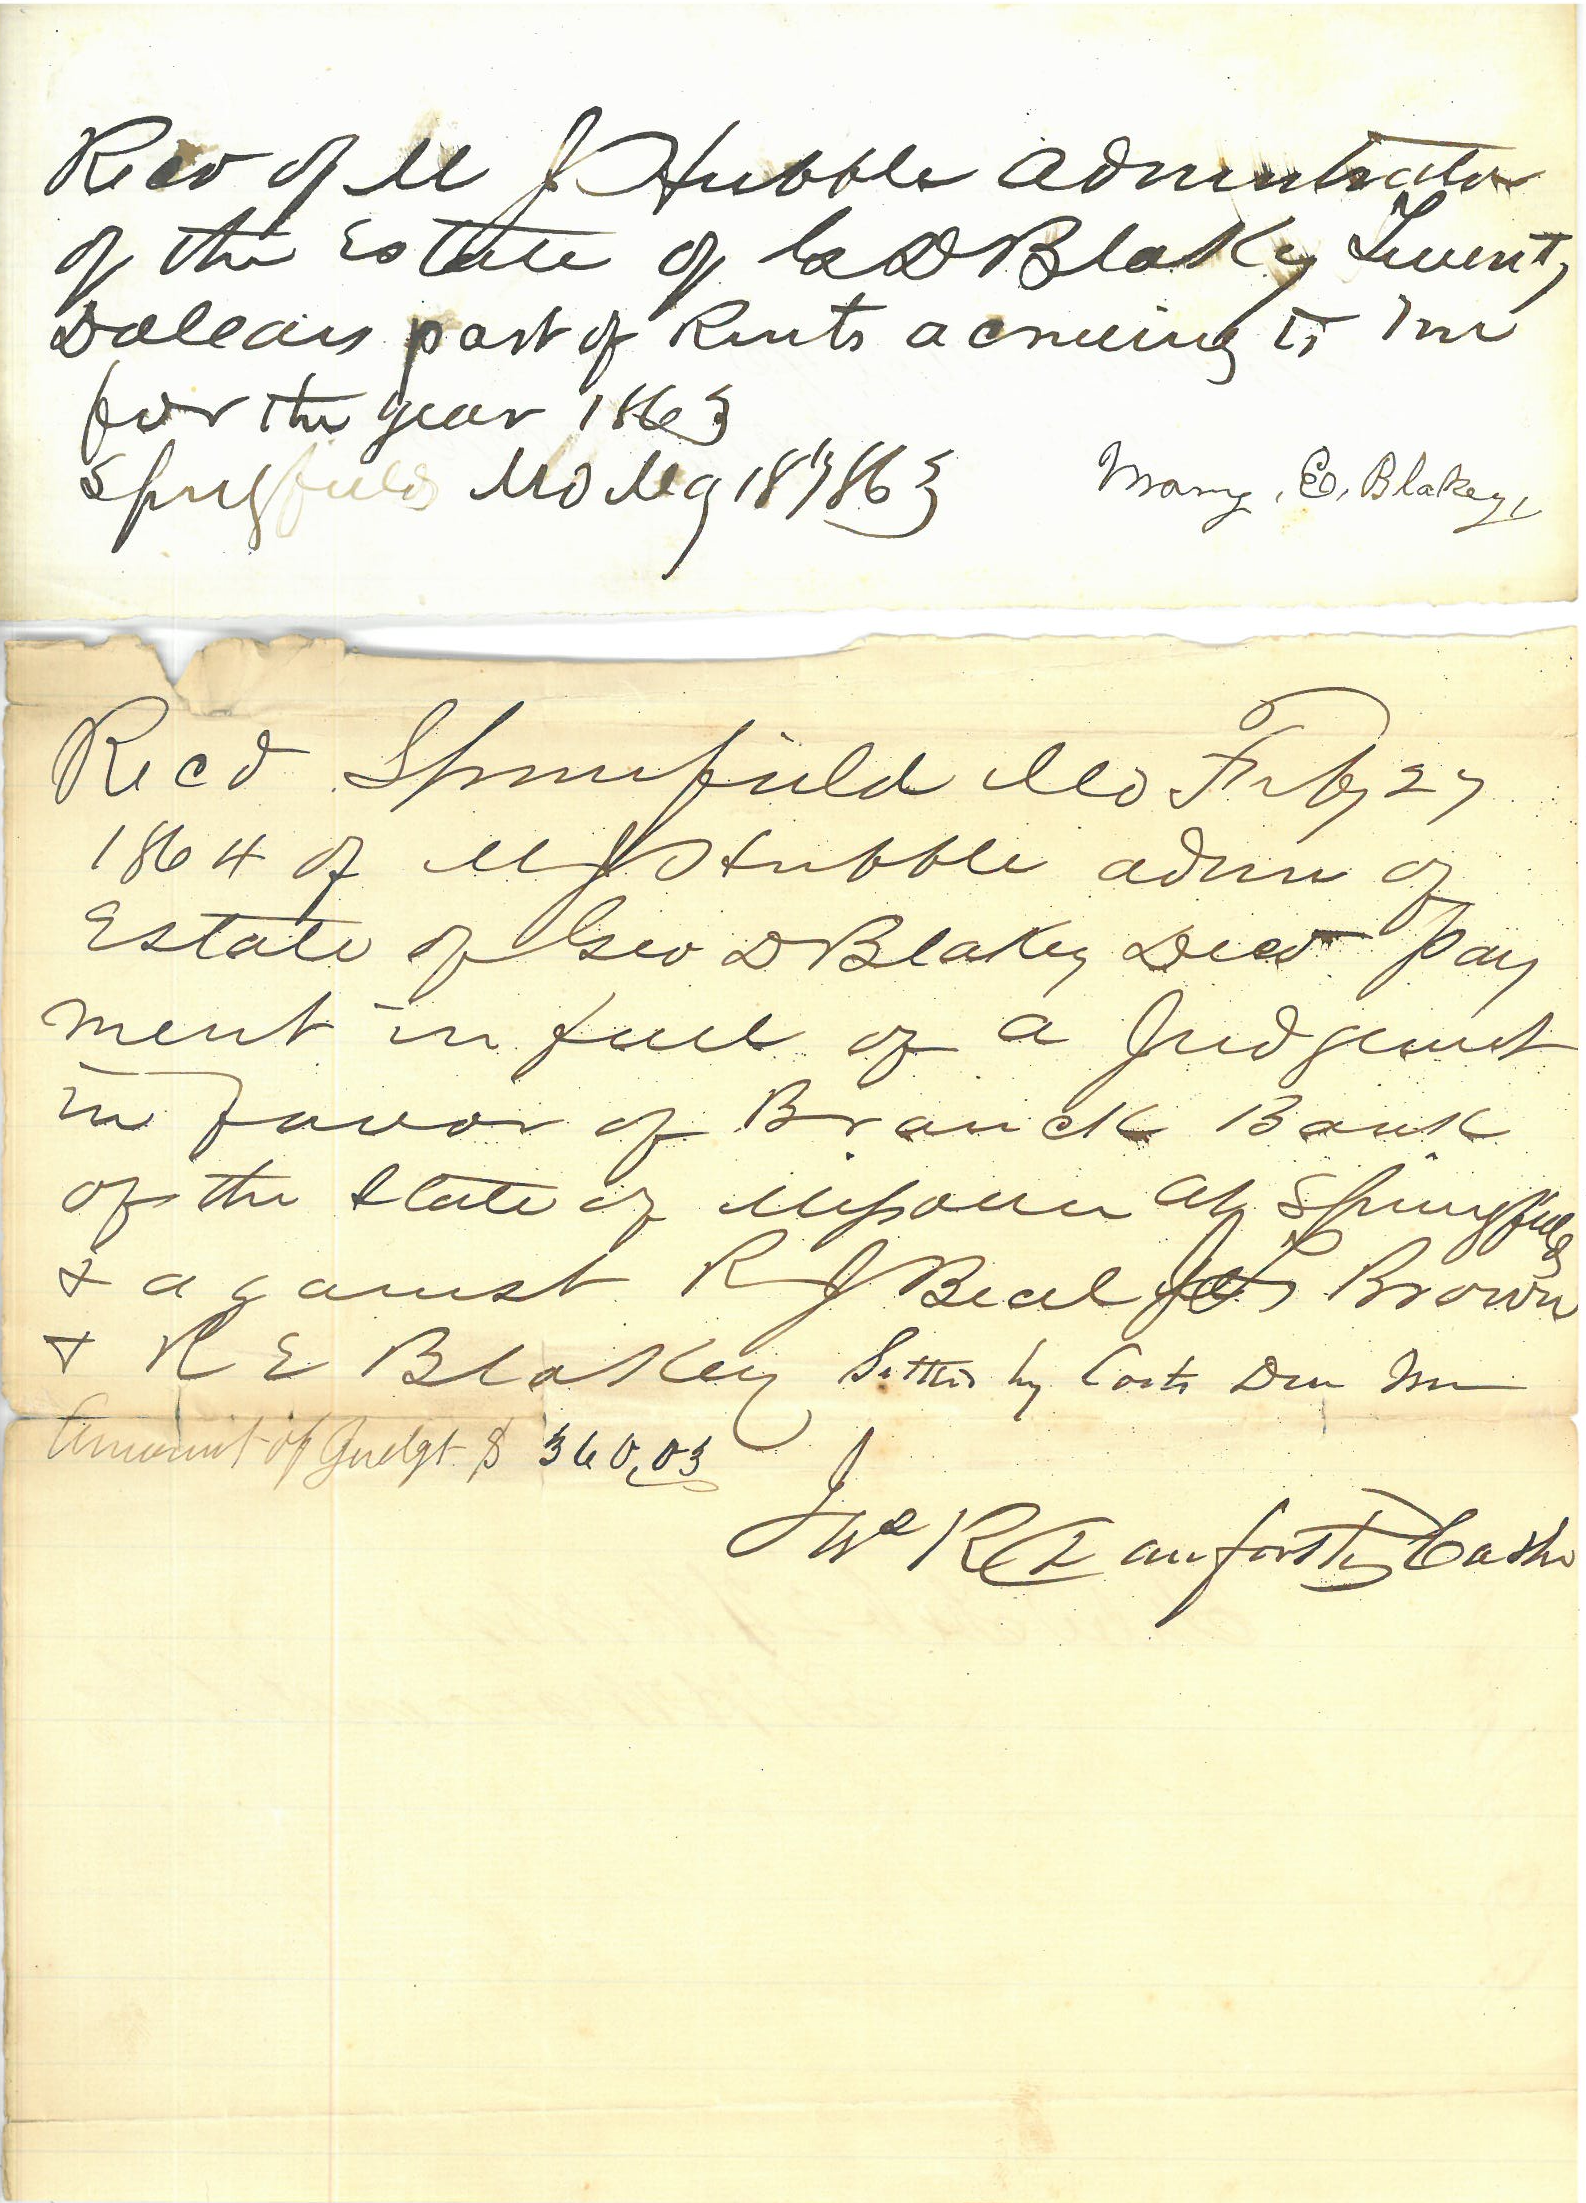 Recd of M J Hubble Admnistrator
of the Estate of G D Blakey Twenty
Dollars part of Rents acruing to me
for the year 1863
Springfield Mo 18th 1863 Mary, E, Blakey,
Recd Springfield Mo Feby 27
1864 of M J Hubble admr of
Estate of Geo D Blakey Decd pay
ment in full of a Judgement
in favor of Branch Bank
of the State of Missouri at Springfield
& against R J Beal Brown
& R E Blakey by Costs
Amount of Judgt $ 360,03
Jno R Danforth Cashr